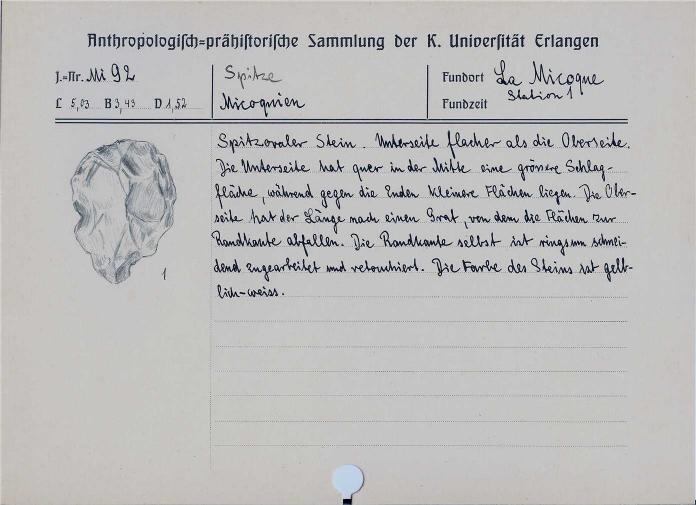 Anthropologisch=prähistorische Sammlung der K. Universität Erlangen
J.=Nr. Mi 92
L 5,03 B 3,43 D 1,52
Spitze
Micoquien
Fundort La Micoque
Station 1
Fundzeit
Spitzovaler Stein. Unterseite flacher als die Oberseite.
Die Unterseite hat quer in der Mitte eine grössere Schlag-
fläche, während gegen die Enden kleinere Flächen liegen. Die Ober-
seite hat der Länge nach einen Grat, von dem die Flächen zur
Randkante abfallen. Die Randkante selbst ist ringsum schnei-
dend zugearbeitet und retouchiert. Die Farbe des Steins ist gelb-
lich-weiss.
1